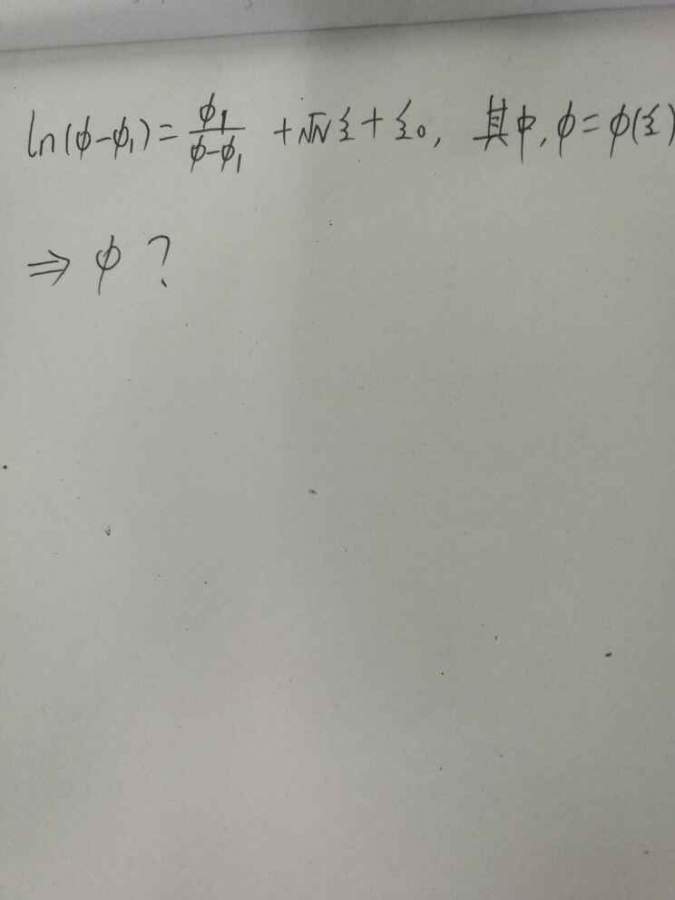 ln(φ-φ₁)=φ₁/(φ-φ₁)+√N ξ+ξ₀, 其中, φ=φ(ξ)
⇒ φ ?